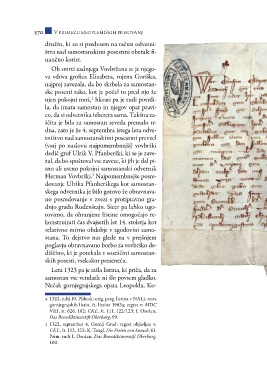 370 V PRIMEŽU MEDPLEMIŠKIH PREVIRANJ
družin, ki so si predvsem na račun odvetni-
štva nad samostanskimi posestmi obetale fi-
nančno korist.
Ob smrti zadnjega Vovbržana se je njego-
va vdova grofica Elizabeta, rojena Goriška,
najprej zavezala, da bo skrbela za samostan-
ske posesti tako, kot je počel to pred njo že
njen pokojni mož,² hkrati pa je tudi potrdi-
la, da imata samostan in njegov opat pravi-
co, da si odvetnika izbereta sama. Takšna za-
ščita je bila za samostan seveda premalo tr-
dna, zato je že 4. septembra istega leta odve-
tništvo nad samostanskimi posestmi prevzel
(vsaj po naslovu najpomembnejši) vovbrški
dedič grof Ulrik V. Pfannberški, ki se je zave-
zal, da bo spoštoval vse zaveze, ki jih je dal pi-
sno ali ustno pokojni samostanski odvetnik
Herman Vovbrški.³ Najpomembnejše posre-
dovanje Ulrika Pfannberškega kot samostan-
skega odvetnika je bilo gotovo že obravnava-
no posredovanje v zvezi s protipravno gra-
dnjo gradu Rudenštajn. Sicer pa lahko ugo-
tovimo, da ohranjene listine omogočajo re-
konstruirati čas dvajsetih let 14. stoletja kot
relativno mirno obdobje v zgodovini samo-
stana. To dejstvo nas glede na v prejšnjem
poglavju obravnavano borbo za vovbrško de-
diščino, ki je potekala v soseščini samostan-
skih posesti, vsekakor preseneča.
Leta 1323 pa je izšla listina, ki priča, da za
samostan vse vendarle ni šlo povsem gladko.
Nečak gornjegrajskega opata Leopolda, Ko-
Das Benediktinerstift Oberburg, 99.
3 1322, september 4, Gornji Grad;
Das Benediktinerstift Oberburg,
100.